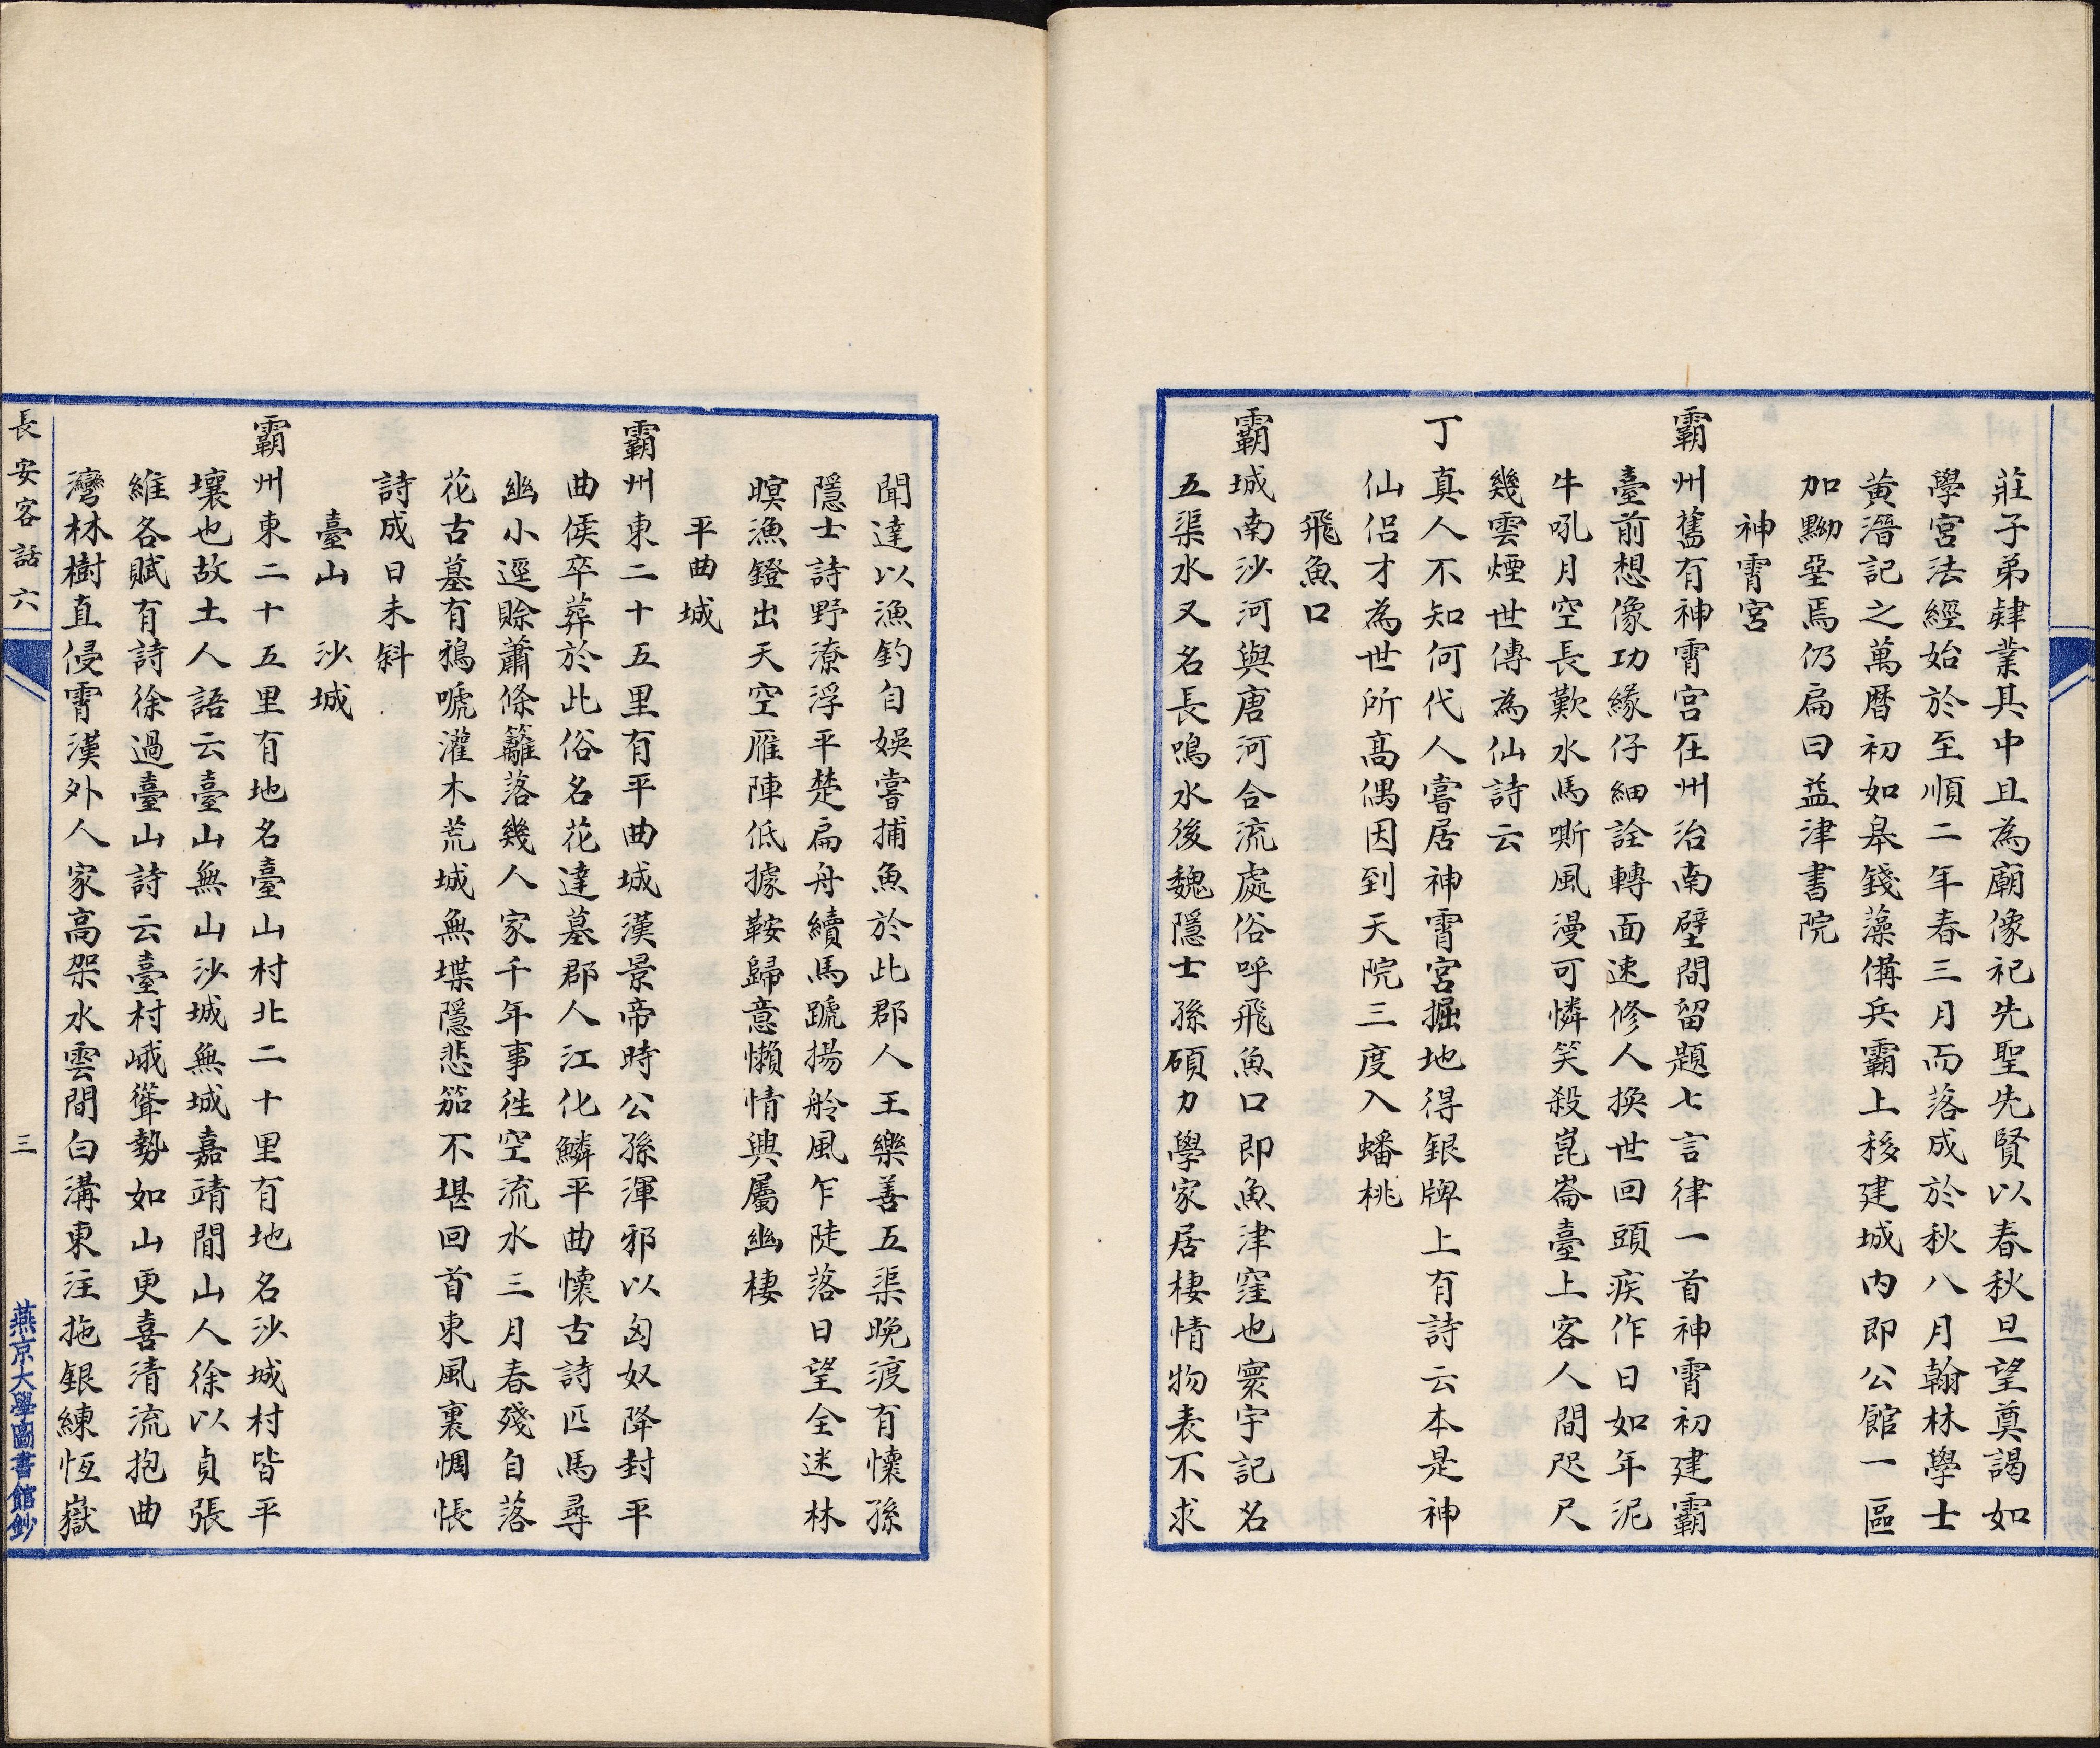 莊子弟肄業其中且為廟像祀先聖先賢以春秋旦望奠謁如
學宮法經始於至順二年春三月而落成於秋八月翰林學士
黃溍記之萬曆初如皋錢藻備兵霸上移建城內即公館一區
加黝堊焉仍扁曰益津書院
神霄宮
霸州舊有神霄宮在州治南壁間留題七言律一首神霄初建霸
臺前想像功緣仔細詮轉面速修人換世回頭疾作日如年泥
牛吼月空長歎水馬嘶風漫可憐笑殺崑崙臺上客人間咫尺
幾雲煙世傳為仙詩云
丁真人不知何代人嘗居神霄宮掘地得銀牌上有詩云本是神
仙侶才為世所高偶因到天院三度入蟠桃
飛魚口
霸城南沙河與唐河合流處俗呼飛魚口即魚津窪也寰宇記名
五渠水又名長鳴水後魏隱士孫碩力學家居棲情物表不求
聞達以漁釣自娛嘗捕魚於此郡人王樂善五渠晚渡有懷孫
隱士詩野潦浮平楚扁舟續馬蹏揚舲風乍陡落日望全迷林
暝漁鐙出天空雁陣低據鞍歸意懶情興屬幽棲
平曲城
霸州東二十五里有平曲城漢景帝時公孫渾邪以匈奴降封平
曲侯卒葬於此俗名花達墓郡人江化鱗平曲懷古詩匹馬尋
幽小逕賒蕭條籬落幾人家千年事往空流水三月春殘自落
花古墓有鴉啼灌木荒城無堞隱悲笳不堪回首東風裏惆悵
詩成日未斜
臺山　沙城
霸州東二十五里有地名臺山村北二十里有地名沙城村皆平
壤也故土人語云臺山無山沙城無城嘉靖間山人徐以貞張
維各賦有詩徐過臺山詩云臺村峨聳勢如山更喜清流抱曲
灣林樹直侵霄漢外人家高架水雲間白溝東注拖銀練恆嶽
長安客話六
三
燕京大學圖書館鈔